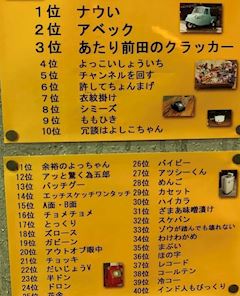 1位 ナウい
2位 アベック
3位 あたり前田のクラッカー
4位 よっこいしょういち
5位 チャンネルを回す
6位 許してちょんまげ
7位 衣紋掛け
8位 シミーズ
9位 ももひき
10位 冗談はよしこちゃん
11位 余裕のよっちゃん
12位 アッと驚く為五郎
13位 バッチグー
14位 エッチスケッチワンタッチ
15位 A面・B面
16位 チョメチョメ
17位 とっくり
18位 ズロース
19位 ガビーン
20位 アウトオブ眼中
21位 チョッキ
22位 だいじょうV
23位 半ドン
24位 ドロン
25位 花金
26位 バイビー
27位 アッシーくん
28位 めんご
29位 カセット
30位 ハイカラ
31位 ざまあ味噌漬け
32位 スケバン
33位 ゾウが踏んでも壊れない
34位 わけわかめ
35位 まぶい
36位 ほの字
37位 レコード
38位 コールテン
39位 冷コー
40位 インド人もびっくり